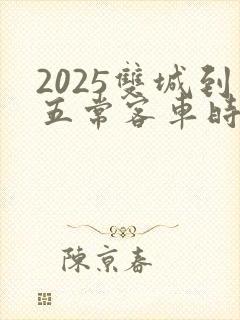 2025雙城到
五常客車時
陳京春